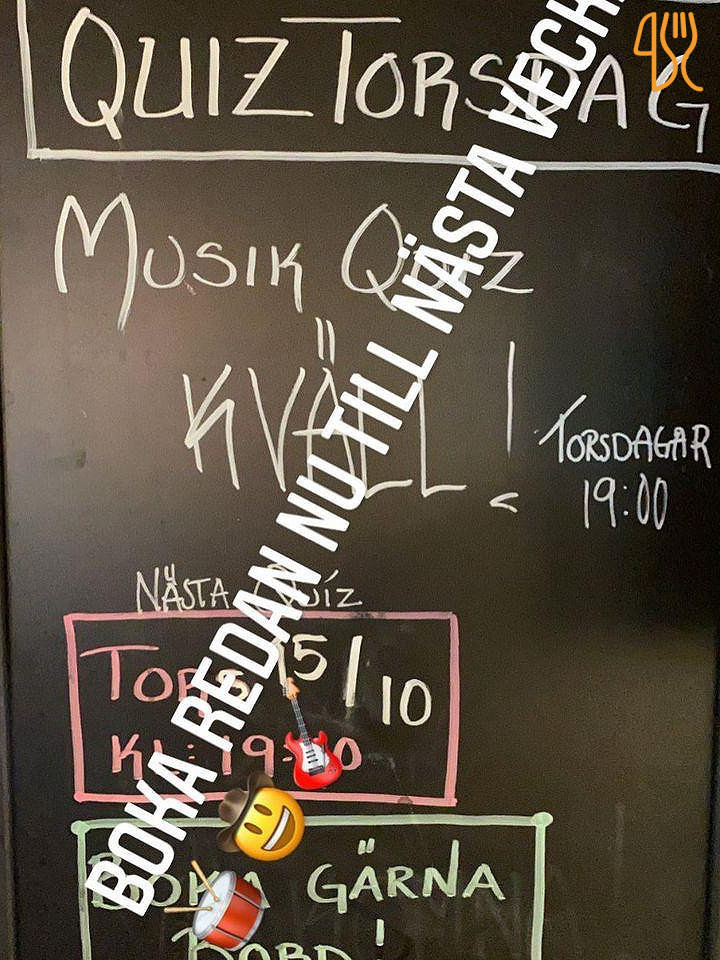 QUIZ TORSDAG
MUSIK QUIZ
KVÄLL!
TORSDAGAR
19:00
NÄSTA QUIZ
TORS 15/10
KL: 19:00
BOKA GÄRNA
BORD!
BOKA REDAN NU TILL NÄSTA